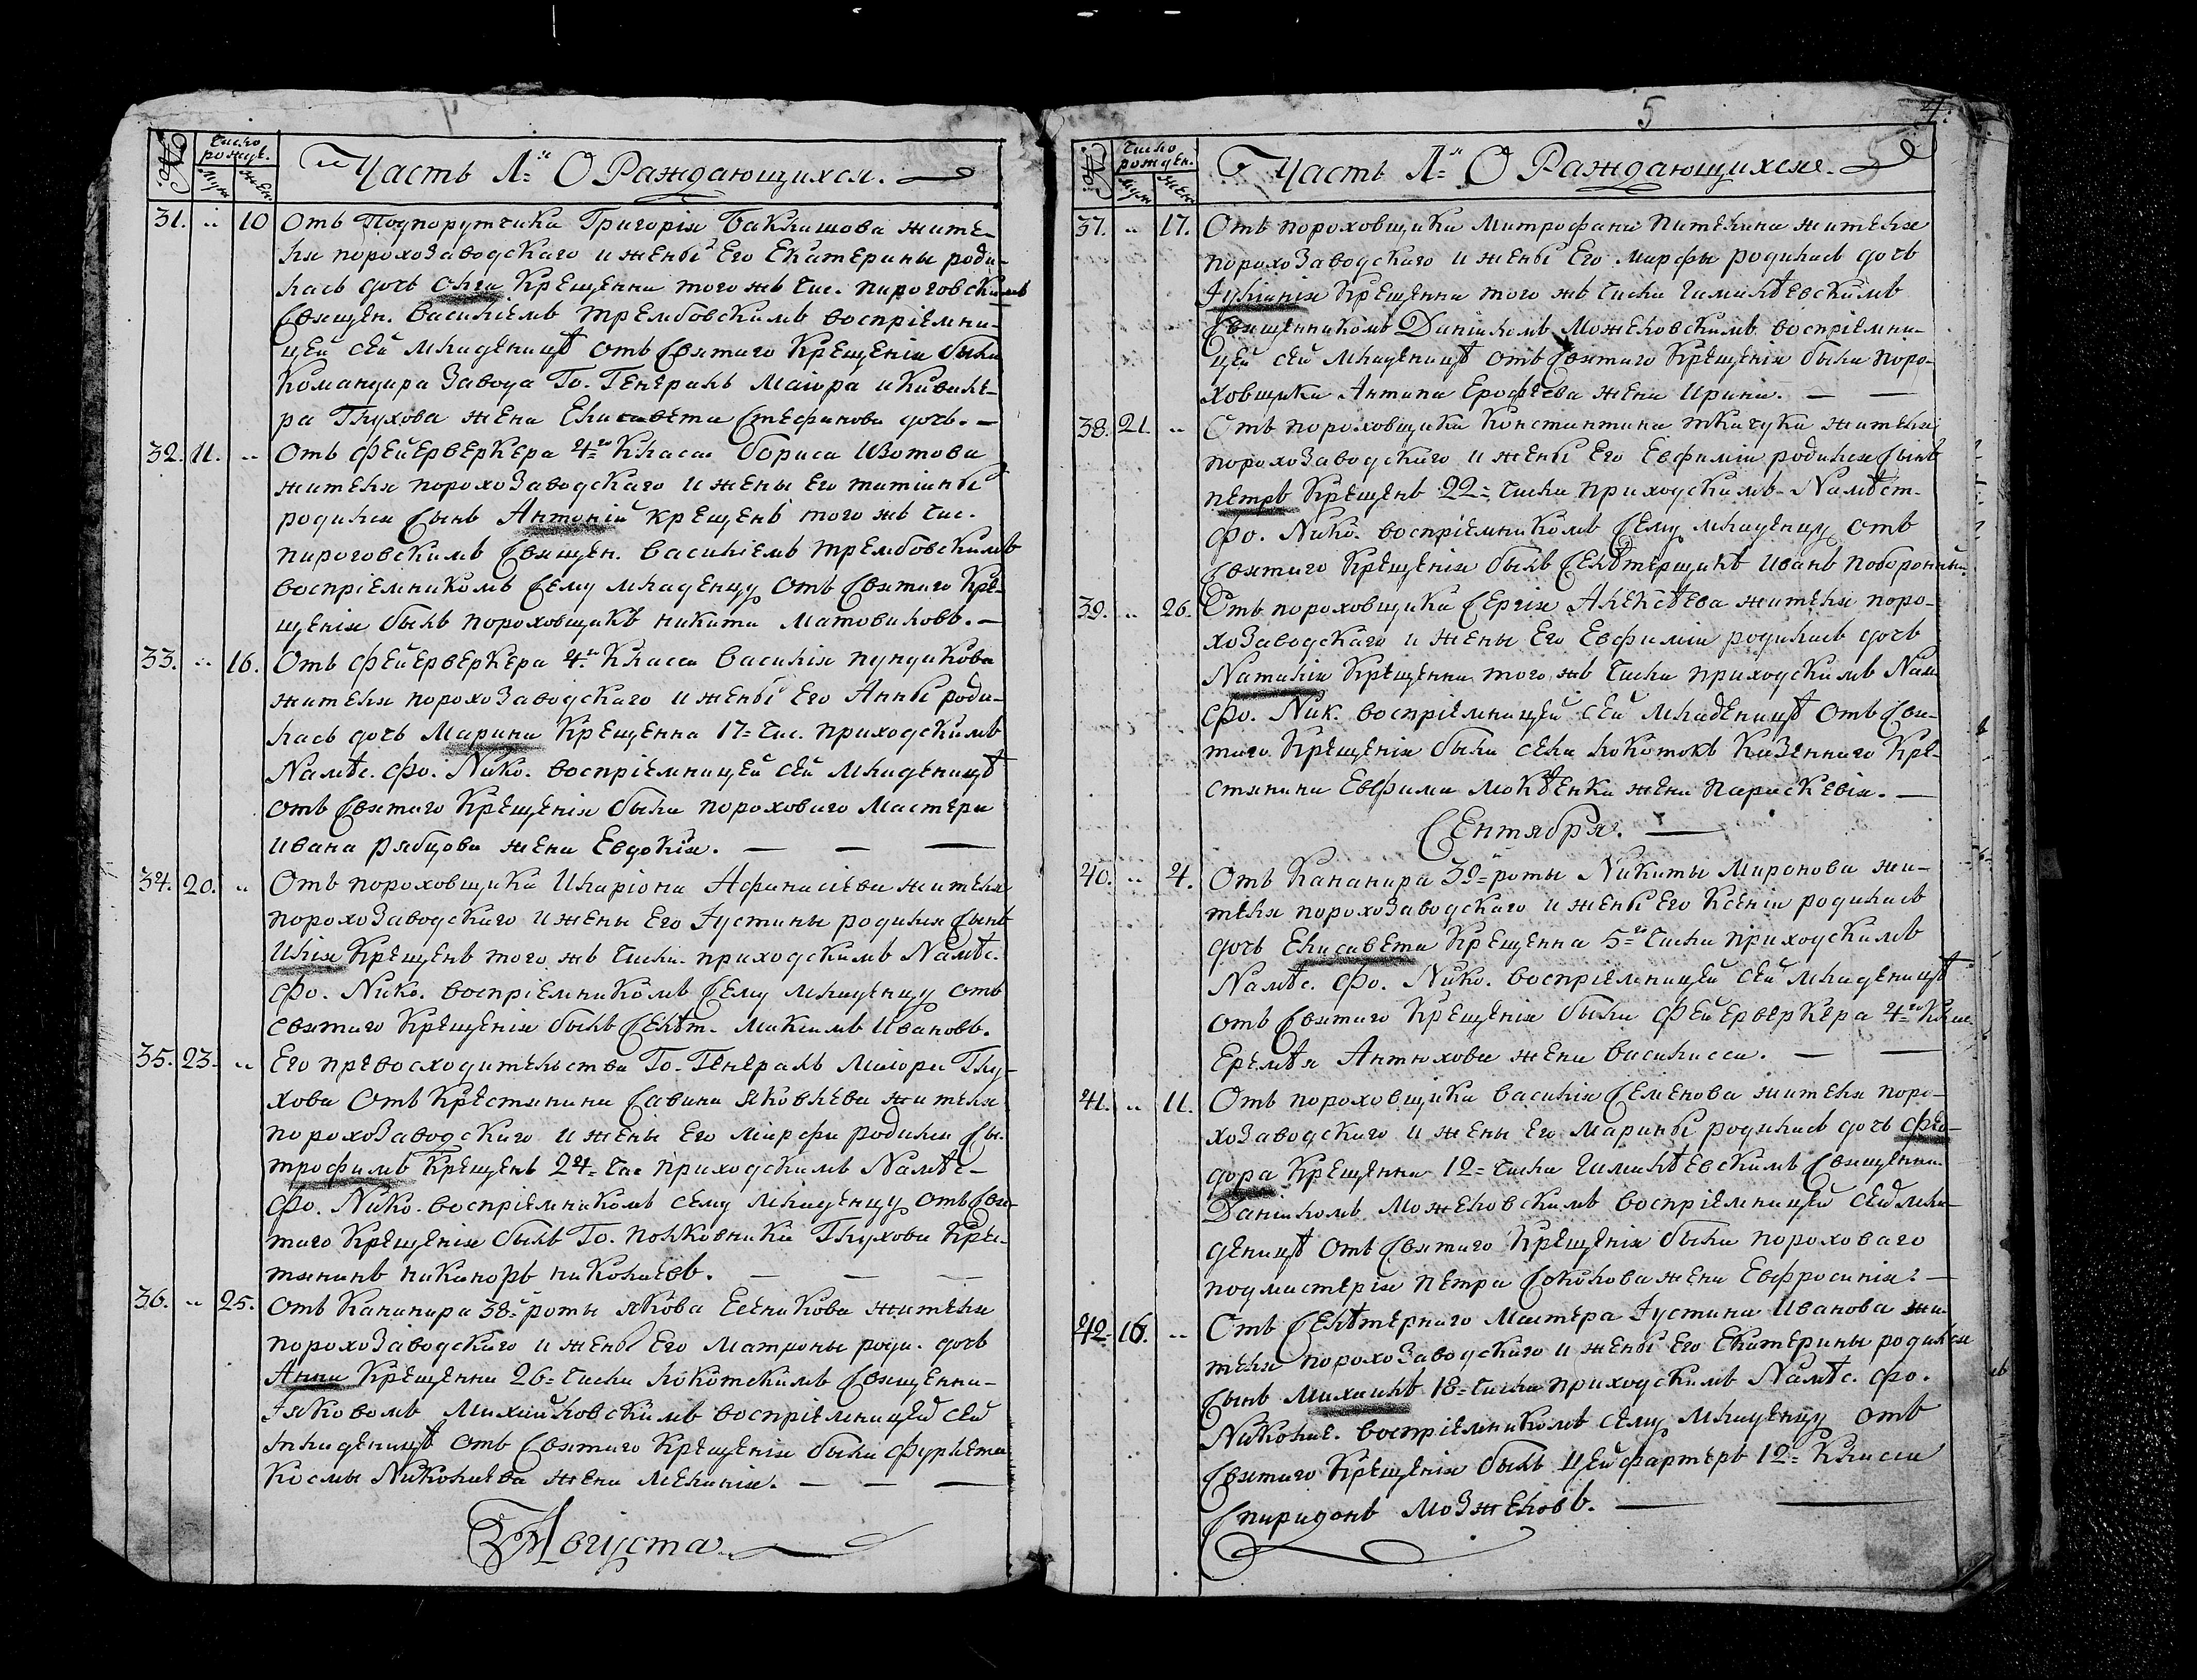 №
Число рожден.
Муж.
Жен.
Часть 1я О Раждающихся.
31. „ 10 Отъ Подпорутчика Григорія Баклашова жите-
ля пороходзаводскаго и жены Его Екатерины роди-
лась дочь Олга Крещенна того жъ чис. пироговскимъ
Священ. Василіемъ Трембовскимъ воспріемни-
цей сей младеницѣ отъ Святаго Крещенія была
Командира Завода Го. Генералъ Маіора и Кавале-
ра Глухова жена Елисавета Стефанова дочь.
32. 11. „ Отъ Фейерверкера 4го Класса Бориса Изотова
жителя порохозаводскаго и жены Его татіаны
родился Сынъ Антоній крещенъ того жъ чис.
пироговскимъ Священ. Василіемъ Трембовскимъ
воспріемникомъ Сему младенцу отъ Святаго Кре-
щенія былъ пороховщикъ никита Матовиловъ.
33. „ 16. Отъ Фейерверкера 4го Класса Василія пундикова
жителя порохозаводскаго и жены Его Анны роди-
лась дочь Марина Крещенна 17= чис. приходскимъ
Намѣс. Фо. Нико. воспріемницей сей младеницѣ
отъ Святаго Крещенія была пороховаго Мастера
Ивана рябцова жена Евдокія.
34. 20. „ Отъ пороховщика Иларіона Афанасіева жителя
порохозаводскаго и жены Его Іустины родился Сынъ
Илія Крещенъ того жъ числа приходскимъ Намѣс.
Фо. Нико. воспріемникомъ Сему младенцу отъ
святаго Крещенія былъ Селѣт. Максимъ Ивановъ.
35. 23. „ Его превосходительства Го. Генералъ Маіора Глу-
хова Отъ Крестянина Савина яковлева жителя
порохозаводскаго и жены Его Марфы родился Сы.
трофимъ Крещенъ 24= чис приходскимъ Намѣс-
Фо. Нико. воспріемникомъ сему младенцу отъ Свя-
таго Крещенія былъ Го. полковника Глухова Крес-
тянинъ никаноръ николаевъ.
36. „ 25. Отъ Канонира 38й роты якова Есеникова жителя
порохозаводскаго и жены Его Матроны роди. дочь
Анна Крещенна 26= числа локотскимъ Священни-
Іяковомъ Михайловскимъ воспріемницей сей
младеницѣ отъ Святаго Крещенія была фурлета
Космы Николаева жена Меланія.
Августа
5
4.
№
Число рожден.
Муж
Жен.
Часть 1я О Раждающихся.
37. „ 17. Отъ пороховщика Митрофана Питекина жителя
порохозаводскаго и жены Его Марфы родилась дочь
Іуліанія Крещенна того жъ числа Гамалѣевскимъ
Священникомъ Даніиломъ Можековскимъ воспріемни-
цей сей младеницѣ отъ Святаго Крещенія была поро-
ховщика Антипа Ерофеева жена Ирина.
38. 21. „ Отъ пороховщика Константина ткачука жителя
порохозаводскаго и жены Его Евфиміи родился Сынъ
петръ Крещенъ 22= числа приходскимъ Намѣст-
Фо. Нико. воспріемникомъ Сему младенцу отъ
святаго Крещенія былъ Селѣтерщикъ Иванъ
39. „ 26. Отъ пороховщика Сергія Алексѣева жителя поро-
хозаводскаго и жены Его Евфиміи родилась дочь
Наталія Крещенна того жъ числа приходскимъ Нам
Фо. Ник. воспріемницей сей младеницѣ отъ Свя-
таго Крещенія была села локотокъ Казеннаго Кре-
стянина Евфима Мокѣенка жена Параскевія.
Сентября.
40. „ 4. Отъ Канонира 39й роты Никиты Миронова жи-
теля порохозаводскаго и жены Его Ксеніи родилась
дочь Елисавета Крещенна 5го числа приходскимъ
Намѣс. Фо. Нико. воспріемницей сей младеницѣ
отъ Святаго Крещенія была Фейерверкера 4го Клас.
Еремѣя Антюхова жена Василисса.
41. „ 11. Отъ пороховщика Василія Семенова жителя поро-
хозаводскаго и жены Его Марины родилась дочь Фео-
дора Крещенна 12= числа Гамалѣевскимъ Священни.
Даніиломъ Можековскимъ воспріемницей сей мла-
деницѣ отъ Святаго Крещенія была пороховаго
подмастерія петра Соколова жена Евфросинія.
42. 16. „ Отъ Селѣтернаго Мастера Іустина Иванова жи-
теля порохозаводскаго и жены Его Екатерины родился
Сынъ Михаилъ 18= числа приходскимъ Намѣс. Фо.
Николае. воспріемникомъ сему младенцу отъ
Святаго Крещенія былъ Цейфартеръ 12= Класса
Спиридонъ Мозжековъ.